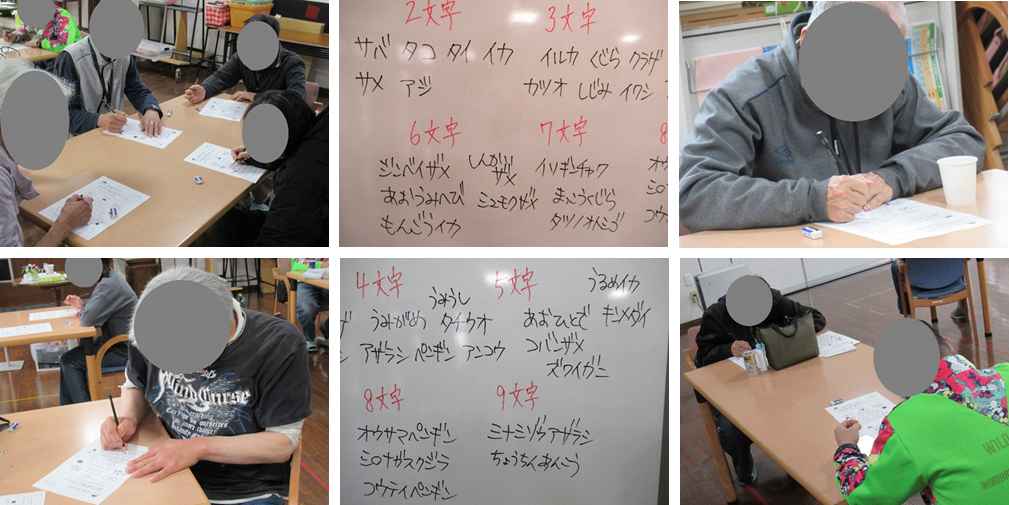 2文字
サバ タコ タイ イカ
サメ アジ
3文字
イルカ くじら クラゲ
カツオ しじみ イワシ
6文字
ジンベイザメ
あおうみへび シュモクザメ
もんごうイカ
7文字
イソギンチャク
まっこうくじら
タツノオトシゴ
8
オウ
シロ
コウ
4文字
うみうし
うみがめ タチウオ
アザラシ ペンギン アンコウ
5文字
うるめイカ
あおひとで キンメダイ
コバンザメ
ズワイガニ
8文字
オウサマペンギン
シロナガスクジラ
コウテイペンギン
9文字
ミナミゾウアザラシ
ちょうちんあんこう
WILD